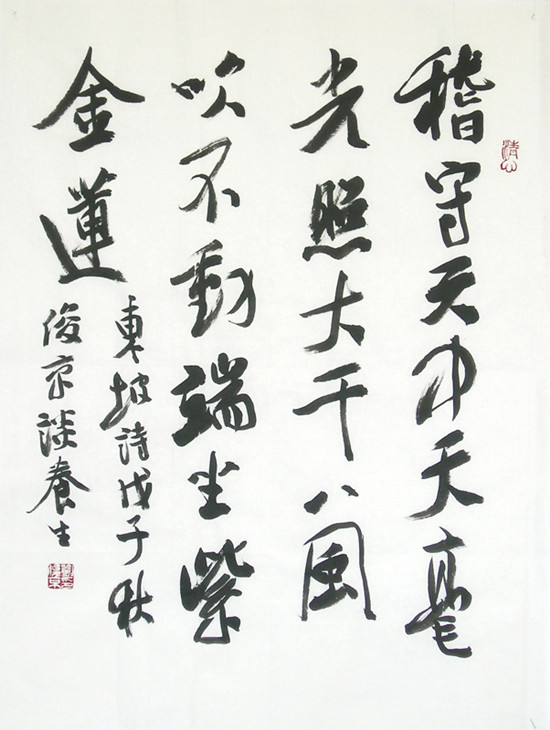 稽守天中天毫
光照大千八風
吹不動端坐紫
金蓮
東坡詩戊子秋
俊京談養生